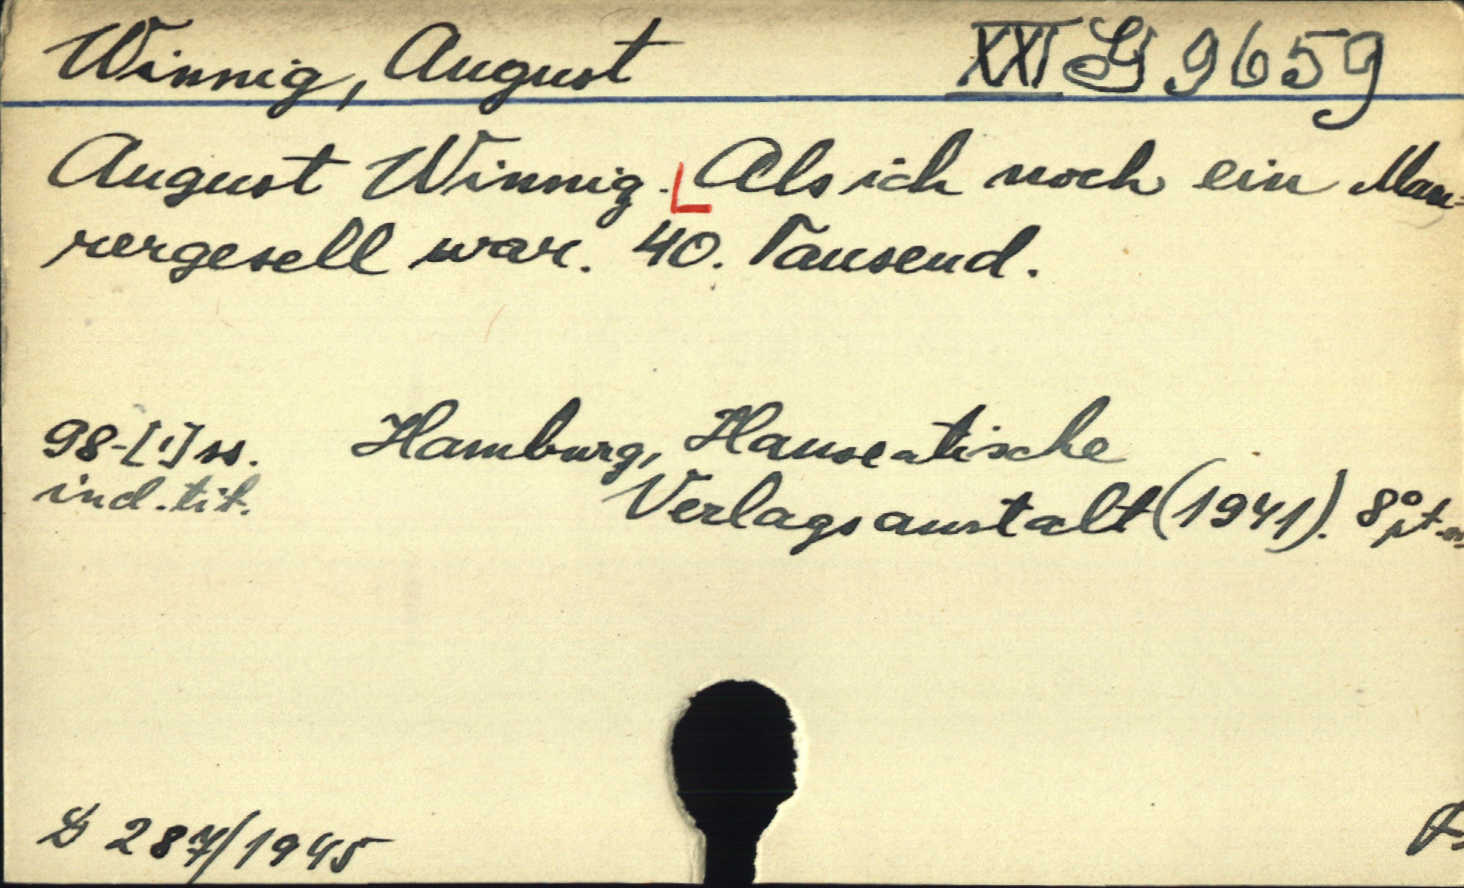 Winnig, August XXI G 9659
August Winnig. Als ich noch ein Mau=
rergesell war. 40. Tausend.
98-[1] ss. Hamburg, Hanseatische
ind. tit. Verlagsanstalt (1941). 8°
287/1945